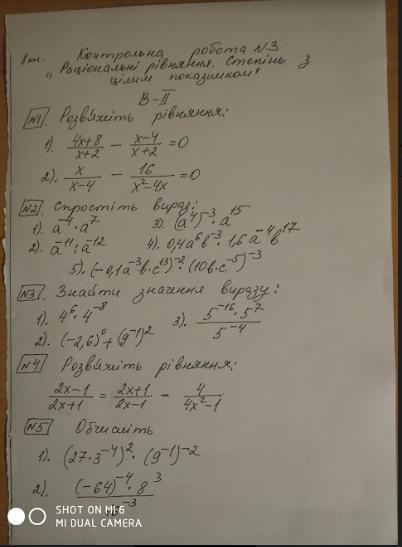 8 кл. Контрольна робота №3
"Раціональні рівняння. Степінь з
цілим показником"
В-II
№1 Розв'яжіть рівняння:
1). (4x+8)/(x+2) − (x−4)/(x+2) = 0
2). x/(x−4) − 16/(x²−4x) = 0
№2 Спростіть вираз:
1). a⁻⁴ · a⁷ 3). (a⁴)⁻³ · a¹⁵
2). a⁻¹¹ : a⁻¹² 4). 0,4a⁶b⁻³ · 1,6a⁻⁴b¹⁷
5). (−0,1a⁻³b·c¹³)⁻² · (10b·c⁻⁵)⁻³
№3 Знайти значення виразу:
1). 4⁶ · 4⁻⁸ 3). (5⁻¹⁶ · 5⁷)/5⁻⁴
2). (−2,6)⁰ + (9⁻¹)²
№4 Розв'яжіть рівняння:
(2x−1)/(2x+1) = (2x+1)/(2x−1) − 4/(4x²−1)
№5 Обчисліть
1). (27·3⁻⁴)² · (9⁻¹)⁻²
2). (−64)⁻⁴ · 8³
⁻³
SHOT ON MI 6
MI DUAL CAMERA